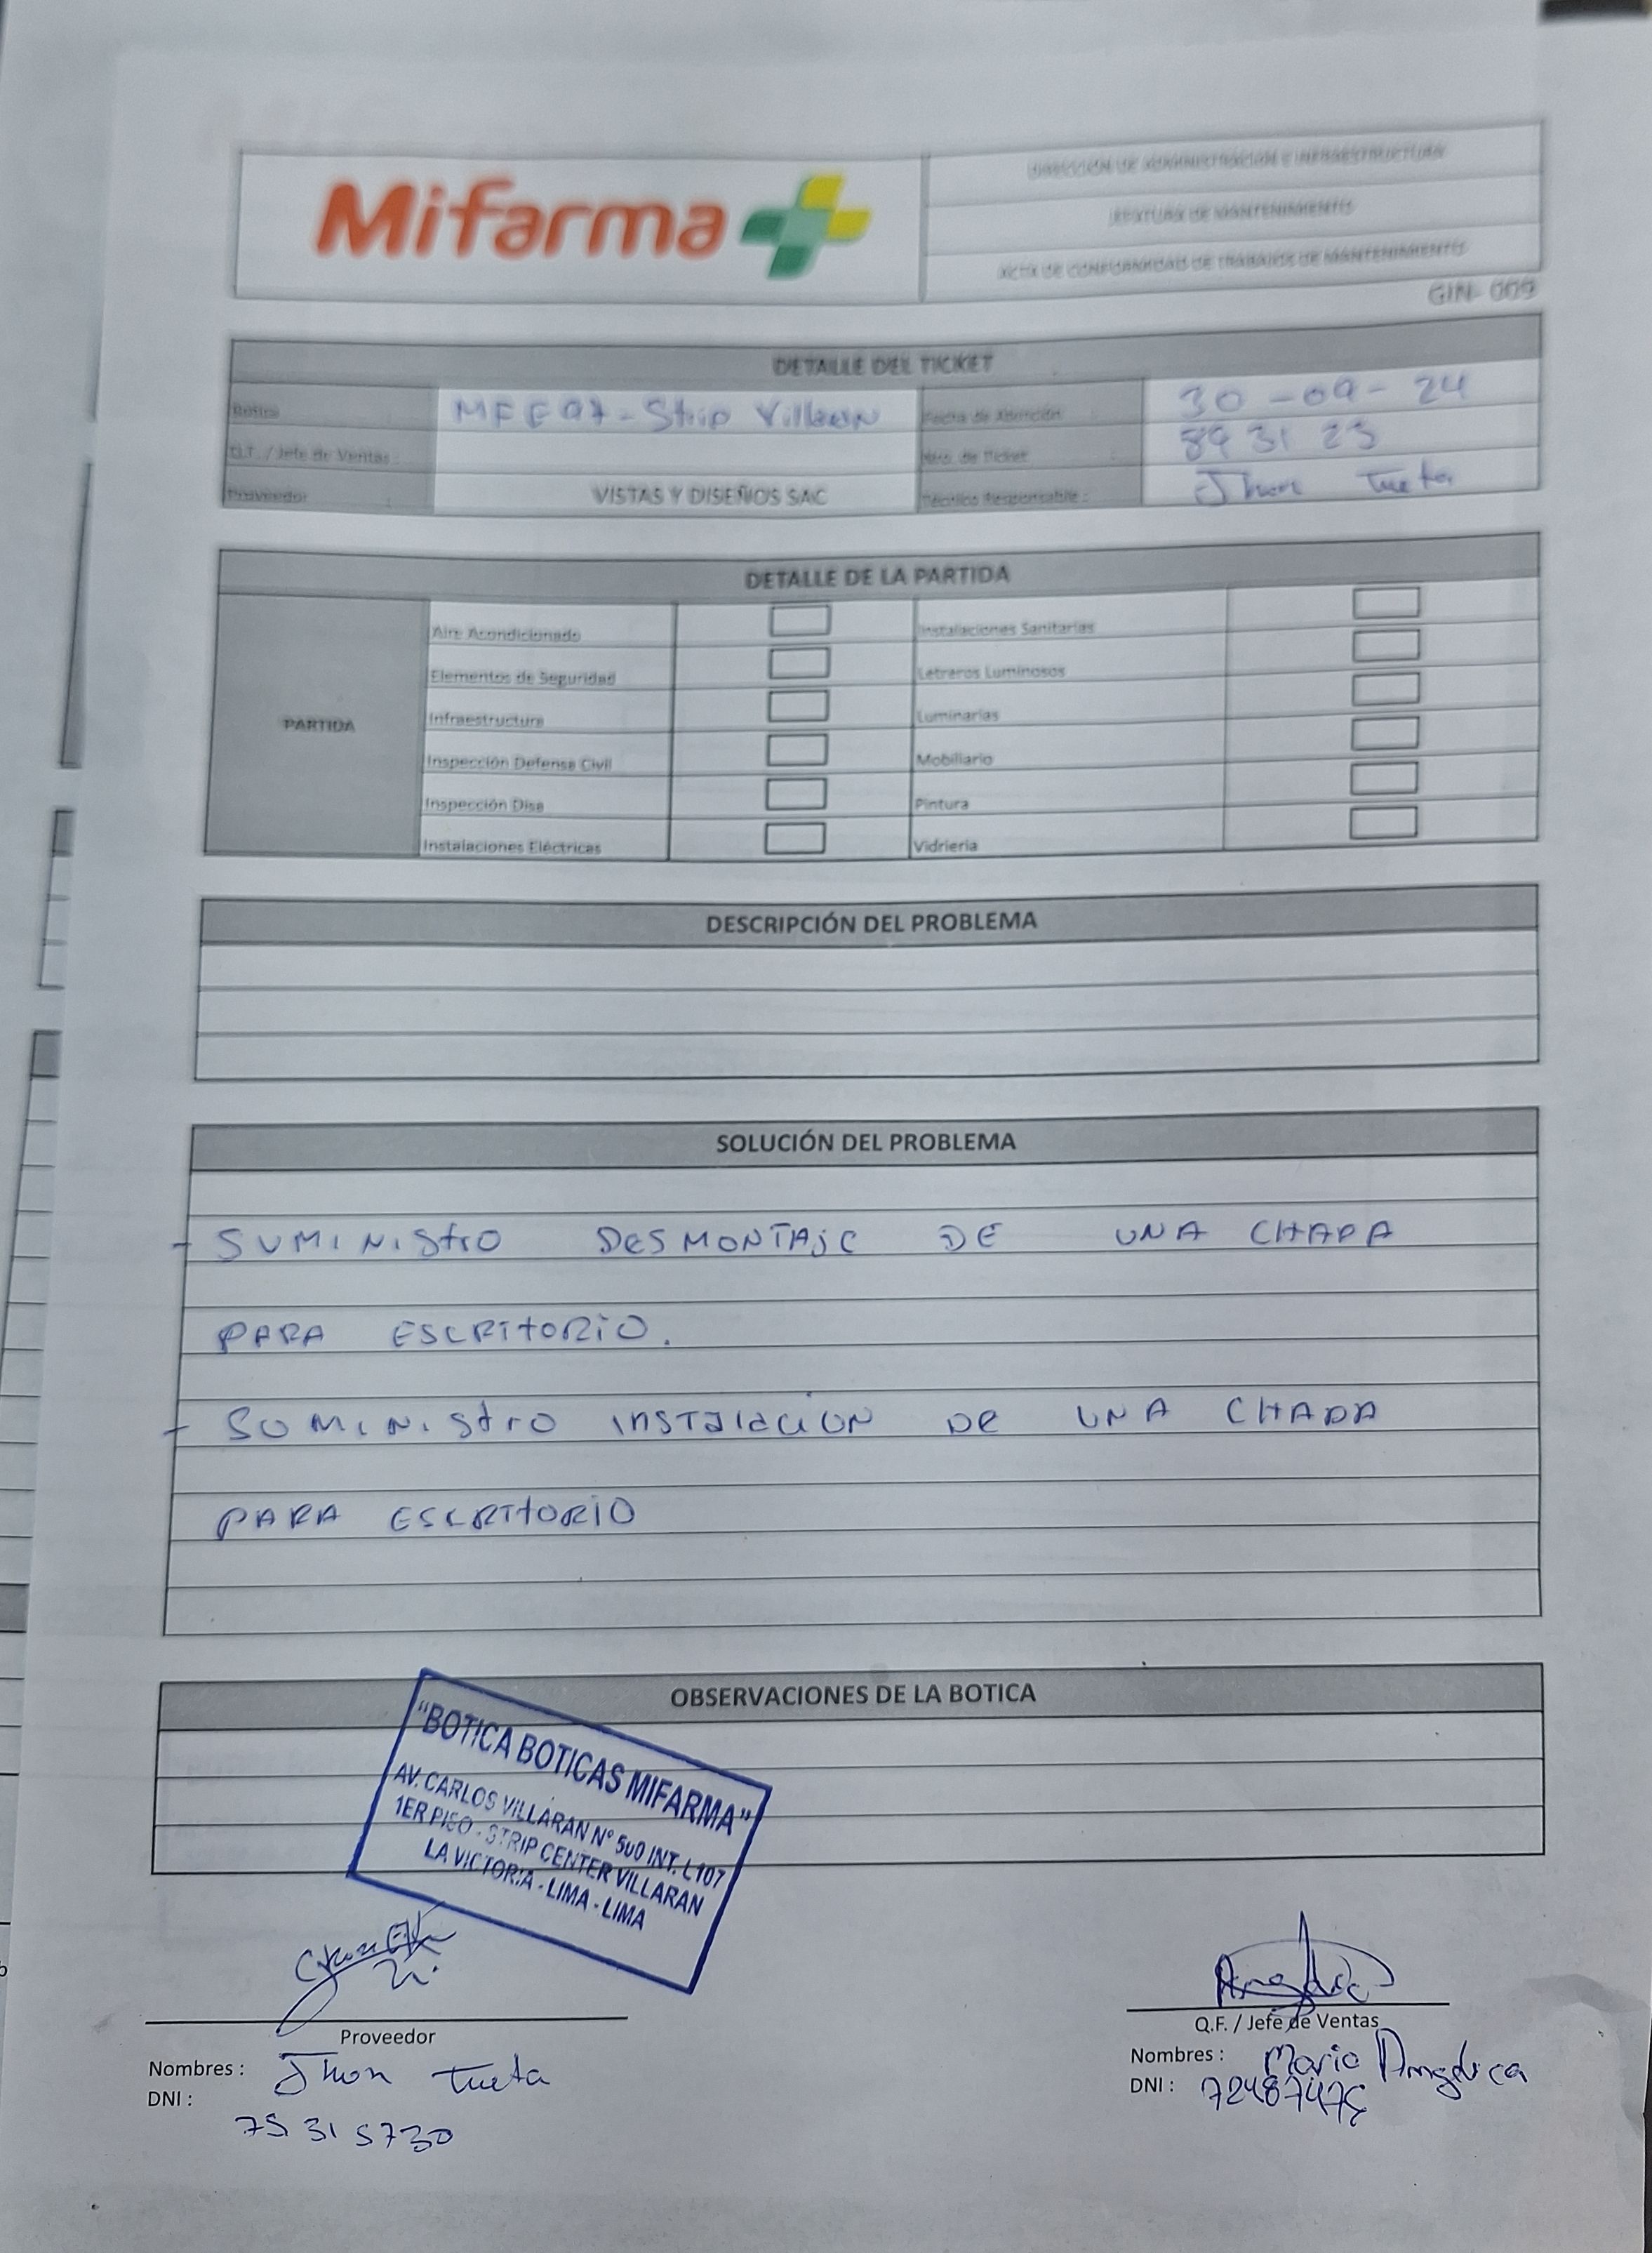 Mifarma
DIRECCIÓN DE ADMINISTRACIÓN E INFRAESTRUCTURA
JEFATURA DE MANTENIMIENTO
ACTA DE CONFORMIDAD DE TRABAJOS DE MANTENIMIENTO
GIN- 009
DETALLE DEL TICKET
Botica MFE97-Strip Villaran Fecha de Atención 30-09-24
Q.F. / Jefe de Ventas : Nro. de Ticket : 893123
Proveedor VISTAS Y DISEÑOS SAC Técnico Responsable : Jhon Tueta
DETALLE DE LA PARTIDA
PARTIDA
Aire Acondicionado Instalaciones Sanitarias
Elementos de Seguridad Letreros Luminosos
Infraestructura Luminarias
Inspección Defensa Civil Mobiliario
Inspección Disa Pintura
Instalaciones Eléctricas Vidriería
DESCRIPCIÓN DEL PROBLEMA
SOLUCIÓN DEL PROBLEMA
- SUMINIStrO DESMONTAJE DE UNA CHAPA
PARA ESCRITORIO.
- SUMINIStrO INSTALACION DE UNA CHAPA
PARA ESCRITORIO
OBSERVACIONES DE LA BOTICA
"BOTICA BOTICAS MIFARMA"
AV. CARLOS VILLARAN N° 500 INT. L107
1ER PISO - STRIP CENTER VILLARAN
LA VICTORIA - LIMA - LIMA
Proveedor
Nombres : Jhon Tueta
DNI :
75315730
Angelica
Q.F. / Jefe de Ventas
Nombres : Maria Angelica
DNI : 72487475